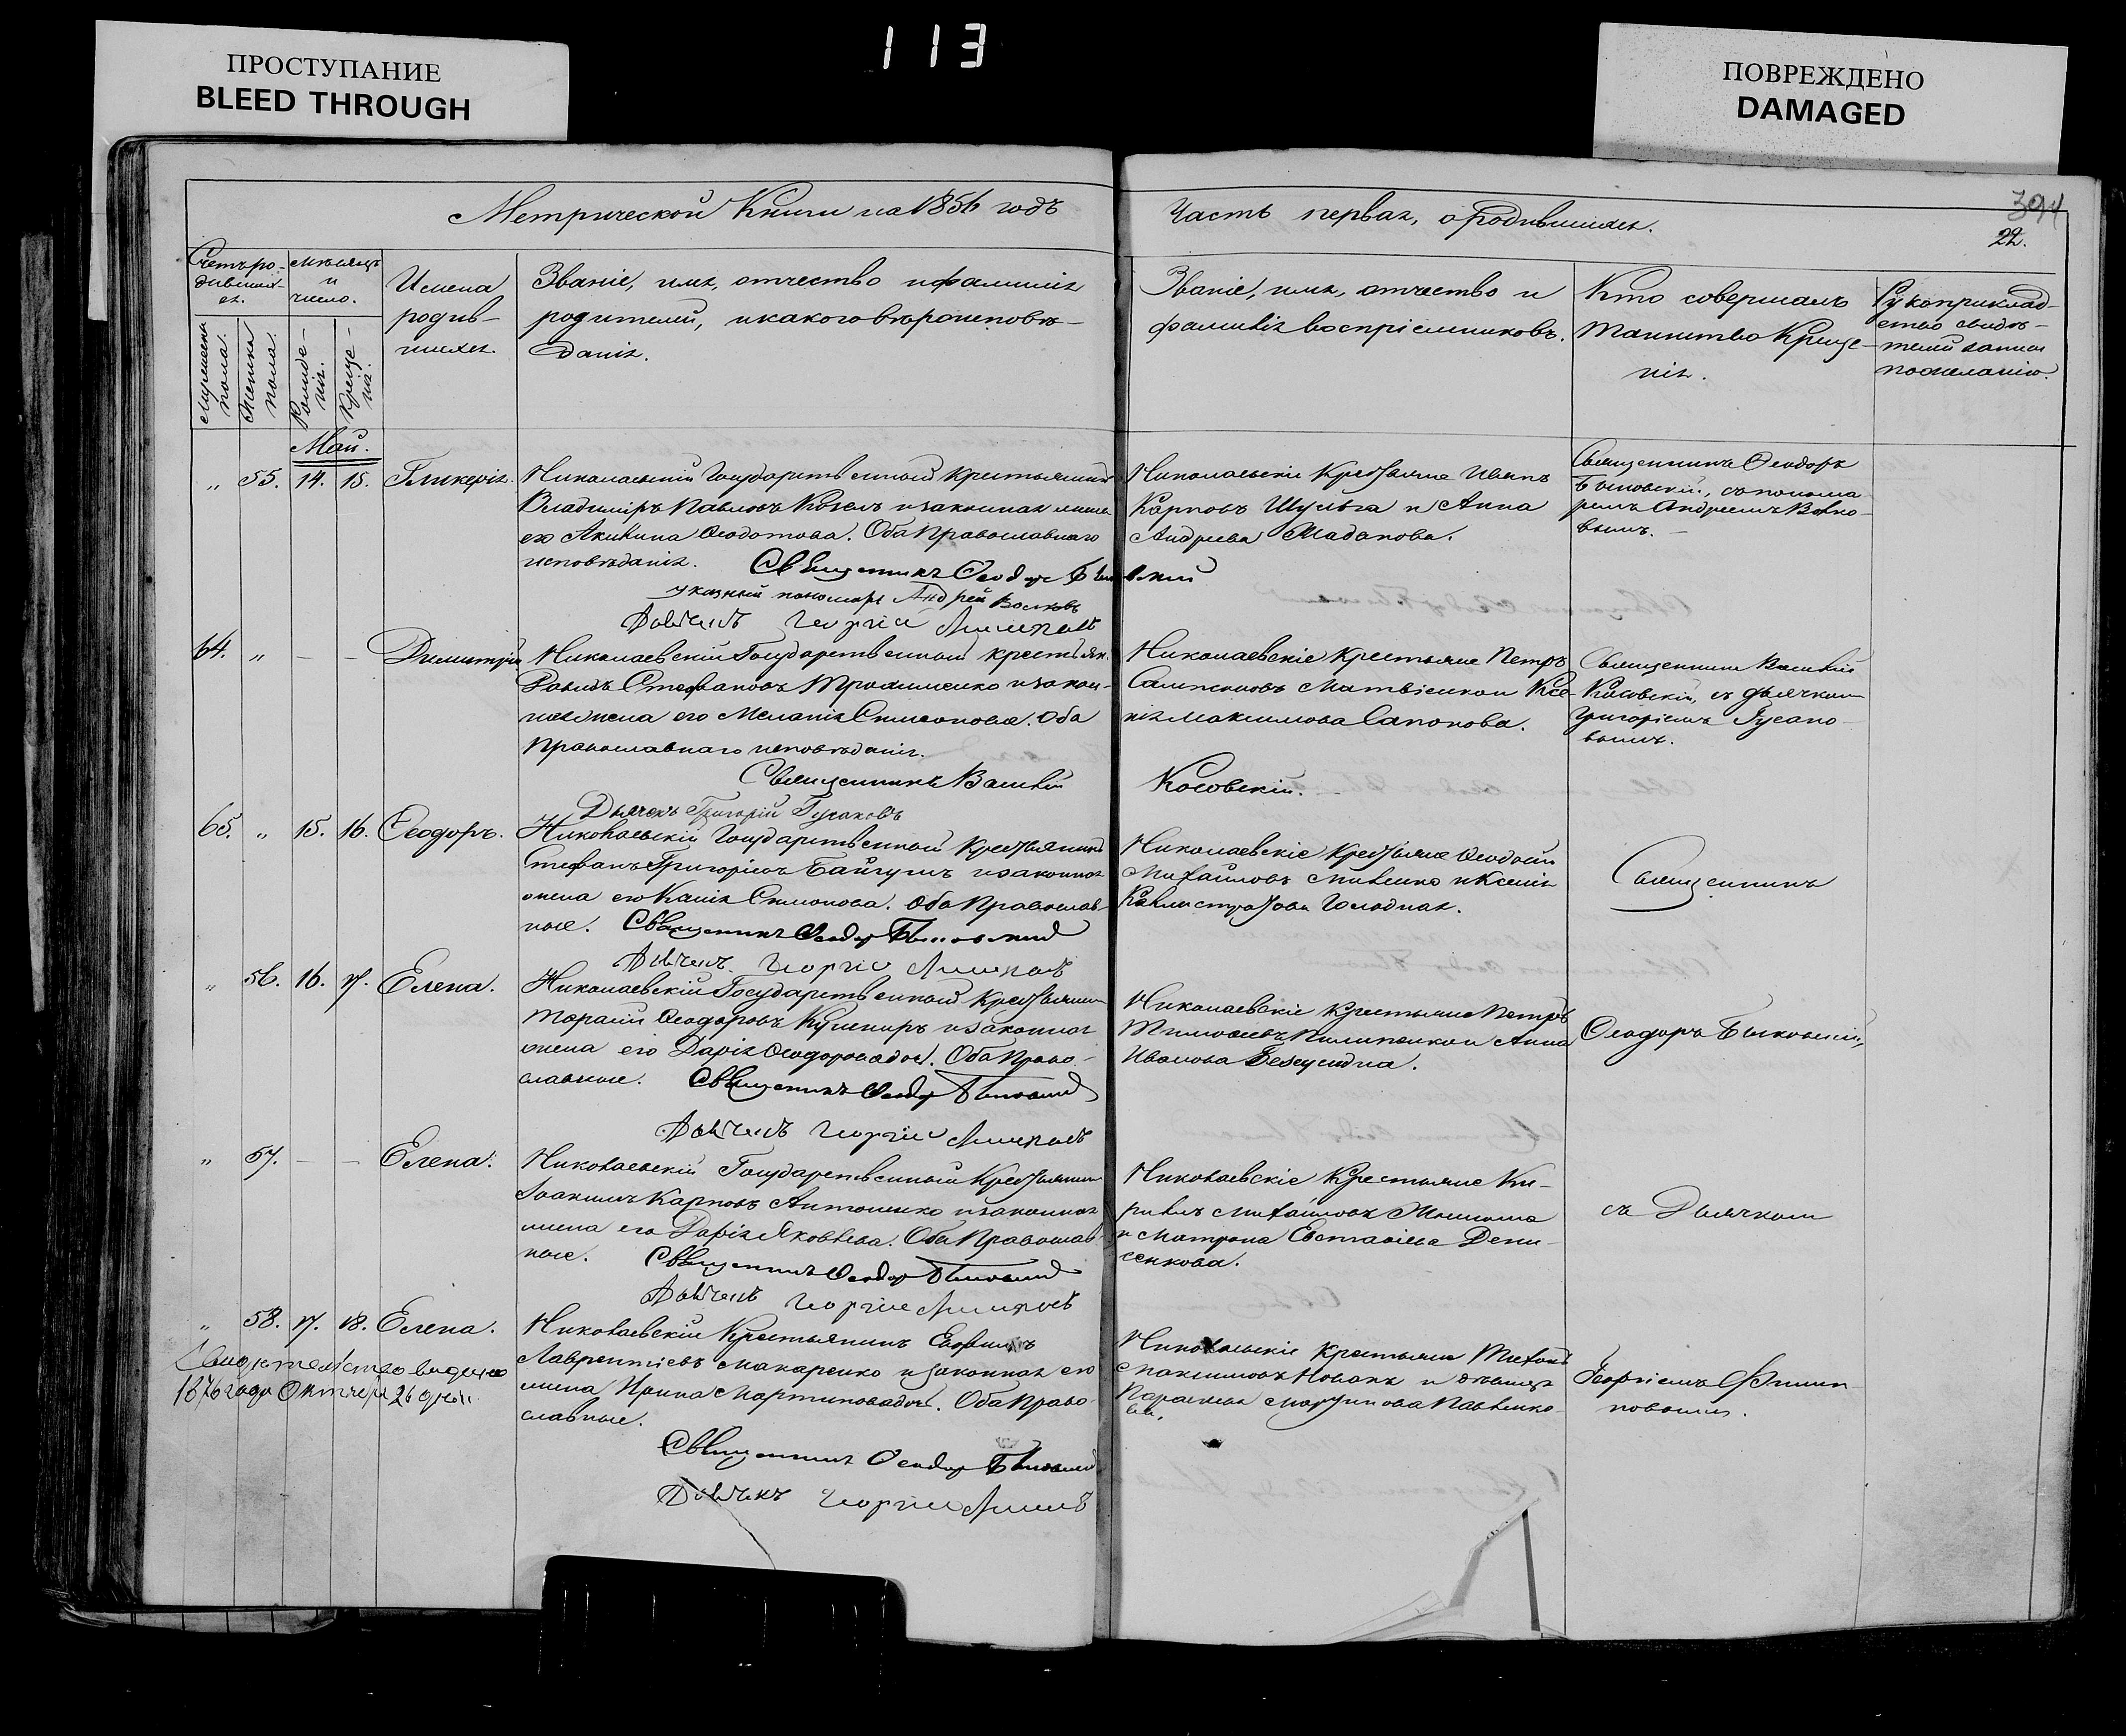 113
ПРОСТУПАНИЕ
BLEED THROUGH
ПОВРЕЖДЕНО
DAMAGED
Метрической Книги на 1856 годъ
Часть первая, о родившихся.
394
22.
Счетъ ро-
дивших-
ся.
Мѣсяцъ
и
число.
Мужеска
пола.
Женска
пола.
Рожде-
нія.
Креще-
нія.
Имена
родив-
шихся.
Званіе, имя, отчество и фамилія
родителей, и какого вѣроисповѣ-
данія.
Званіе, имя, отчество и
фамилія воспріемниковъ.
Кто совершалъ
таинство Креще-
нія.
Рукоприклад-
ство свидѣ-
телей записи
по желанію.
Май.
„ 55. 14. 15. Гликерія.
Николаевскій Государственный крестьянинъ
Владиміръ Павловъ Козелъ и законная жена
его Акилина Ѳеодотова. Оба Православнаго
исповѣданія. Священникъ Ѳеодоръ Быковскій
указный пономарь Андрей Волковъ
Дьячекъ Георгій
Николаевскіе Крестьяне Иванъ
Карповъ Шульга и Анна
Андреева Мадакова.
Священникъ Ѳеодоръ
Быковскій, съ понома
ремъ Андреемъ Волко-
вымъ.
64. „ — — Димитрій
Николаевскій Государственный крестьян.
Давидъ Стефановъ Трохименко и закон-
ная жена его Меланія Симеонова. Оба
Православнаго исповѣданія.
Священникъ Василій Косовскій.
Дьячекъ Григорій Гусаковъ
Николаевскіе крестьяне Петръ
Сампсоновъ Матвіенко и Ксе-
нія Максимова Сапонова.
Священникъ Василій
Косовскій, съ дьячкомъ
Григоріемъ Гусако-
вымъ.
65. „ 15. 16. Ѳеодоръ.
Николаевскій Государственный Крестьянинъ
Стефанъ Григорьевъ и законная
жена его Симонова. Оба Православ-
ные. Священникъ Ѳеодоръ Быковскій
Дьячекъ Георгій
Николаевскіе Крестьяне Ѳеодосій
Михайловъ и Ксенія
Каллистратова Голодная.
Священникъ
„ 56. 16. 17. Елена.
Николаевскій Государственный Крестьянинъ
Тарасій Ѳеодоровъ Кушниръ и законная
жена его Дарія Ѳеодорова. Оба Право-
славные. Священникъ Ѳеодоръ Быковскій
Дьячекъ Георгій
Николаевскіе Крестьяне Петръ
Тимоѳеевъ Пилипенко и Анна
Иванова
Ѳеодоръ Быковскій,
„ 57. — — Елена.
Николаевскій Государственный Крестьянинъ
Іоакимъ Карповъ Антоненко и законная
жена его Дарія Яковлева. Оба Православ-
ные. Священникъ Ѳеодоръ Быковскій
Дьячекъ Георгій
Николаевскіе Крестьяне Ки-
риллъ Михайловъ
и Матрона Евстафіева Дени-
сенкова.
съ Дьячкомъ
„ 58. 17. 18. Елена.
Свидетельство видено
1876 года 26 дня
Николаевскій Крестьянинъ
Лаврентіевъ Макаренко и законная его
жена Ирина Мартинова. Оба Право-
славные.
Священникъ Ѳеодоръ Быковскій
Дьячекъ Георгій
Николаевскіе Крестьяне Тихонъ
Максимовъ Новакъ и дѣвица
Параскева Мартинова Павленко-
ва.
Георгіемъ Филип-
повымъ.